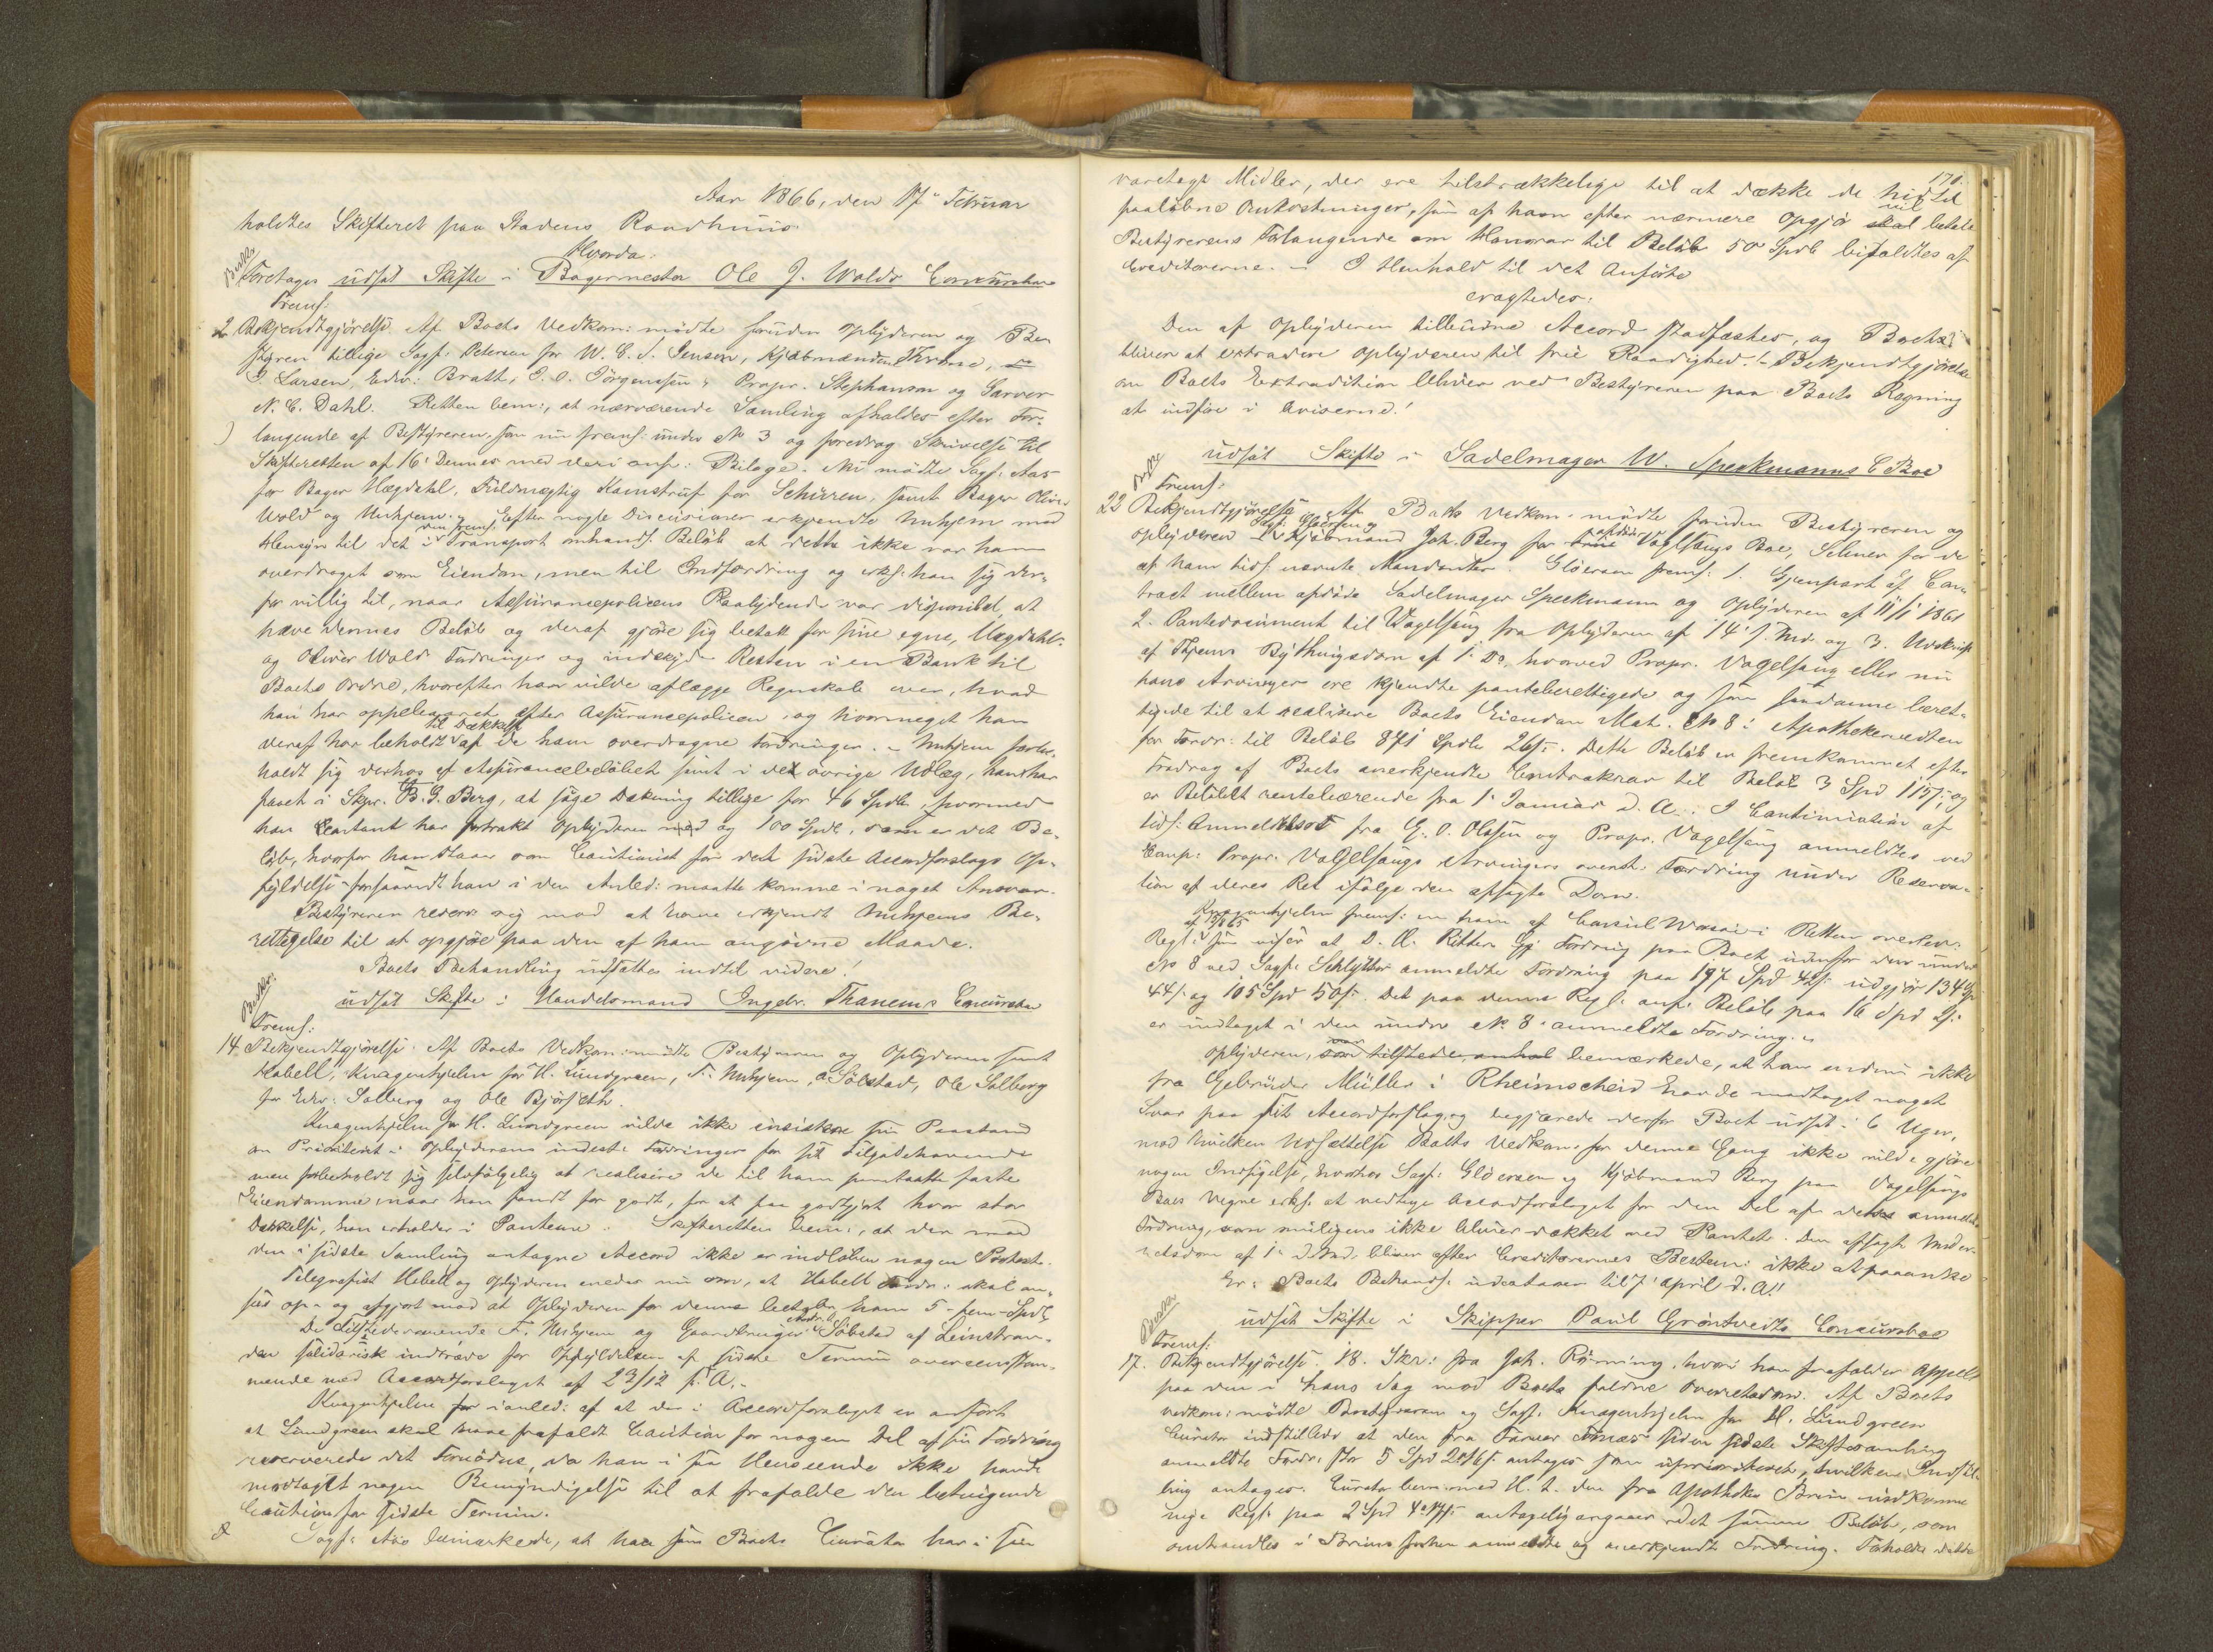 Aar 1866, den 17' Februar
holdtes Skifteret paa Stadens Raadhuus
Hvorda:
Foretages udsat Skifte i Bagermester Ole J. Wolds Concursbo
Frems:
2 Bekjendtgjørelse. Af Boets Vedkom: mødte foruden Opbyderen og Be-
styren tillige Sagf. Petersen for W. C. S. Jensen, Kjøbmændene
J. Larsen, Edv: Bratt, J. O. Jørgensen, Propr. Stephanson og Garver
N. C. Dahl. Retten bem:, at nærværende Samling afholdes efter For-
langende af Bestyreren, som nu frems: under No 3 og foredrog Skrivelse til
Skifteretten af 16' Dennes med deri anf: Bilage. Nu mødte Sagf. Aas
for Bager Hægdahl, Fuldmægtig Kamstrup for Schieren, samt Bager Oliver
Wold og Huhjem. Efter nogle Discusioner erkjendte Huhjem med
Hensyn til det i den frems. Transport omhandl. Beløb at dette ikke var ham
overdraget som Eiendom, men til Indfordring og erkl: han sig der-
for villig til, naar Assurancepolicens Paalydende var disponibel, at
hæve dennes Beløb og deraf gjøre sig betalt for sine egne, Hægdahls
og Oliver Wold Fordringer og indskyde Resten i en Bank til
Boets Ordre, hvorefter han vilde aflægge Regnskab over, hvad
han har oppebaaret efter Assurancepolicen, og hvormeget han
deraf har beholdt til Dækkelse af de ham overdragne Fordringer. – Huhjem forbe-
holdt sig derhos af Assurancebeløbet samt i det øvrige Udlæg, han har
faaet i Skpr. B. G. Berg, at søge Dækning tillige for 46 Spdlr, hvormed
han contant har forstrakt Opbyderen med og 100 Spdl, som er det Be-
løb, hvorfor han staar som Cautionist for det sidste Accordforslags Op-
fyldelse forsaavidt han i den Anled: maatte komme i noget Ansvar.
Bestyreren reserv: sig mod at have erkjendt Huhjems Be-
rettigelse til at opgjøre paa den af ham angivne Maade.
Boets Behandling udsattes indtil videre!
udsat Skifte i Handelsmand Ingebr. Thanems Concursbo
Frems:
14 Bekjendtgjørelse. Af Boets Vedkom: mødte Bestyreren og Opbyderen samt
Habell, Knagenhjelm for H. Lundgreen, F. Huhjem, A Sølstad, Ole Solberg
for Edv: Solberg og Ole Bjørseth.
Knagenhjelm for H. Lundgreen vilde ikke insistere sin Paastand
om Prioritet i Opbyderens indest: Fordringer for sit Tilgodehavende
men forbeholdt sig selvfølgelig at realisere de til ham pantsatte faste
Eiendomme naar han fandt for godt, for at faa godtgjort hvor stor
Dækkelse, han erholder i Pantene. Skifteretten bem:, at der mod
den i sidste Samling antagne Accord ikke er indløben nogen Protest.
Telegrafist Hebell og Opbyderen enedes nu om, at Habell Fordr: skal an-
sees op- og afgjort mod at Opbyderen for denne betaler ham 5 - fem - Spdl
De tilstedeværende F. Huhjem og Gaardbruger Søbstad af Leinstran-
den solidarisk indtræde for Opfyldelsen af sidste Termin overensstem-
mende med Accordforslaget af 23/12 f. A.
Knagenhjelm for i anled: af at der i Accordforslaget er anført
at Lundgreen skal have frafaldt Caution for nogen Del af sin Fordring
reserverede det Fornødne, da han i saa Henseende ikke havde
modtaget nogen Bemyndigelse til at frafalde den betingende
Caution for sidste Termin.
Sagf: Aas bemærkede, at han som Boets Curator har i sin
170.
varetægt Midler, der ere tilstrækkelige til at dække de hidtil
paaløbne Omkostninger, som af ham efter nærmere Opgjør skal vil betale
Bestyrerens Forlangende om Honorar til Beløb 50 Spdlr bifaldtes af
Creditorerne. – I Henhold til det Anførte
eragtedes:
Den af Opbyderen tilbudne Accord stadfæstes, og Boets
bliver at extradere Opbyderen til frie Raadighed! – Bekjendtgjørelse
om Boets Extradition bliver ved Bestyreren paa Boets Regning
at indføre i Aviserne!
udsat Skifte i Sadelmager W. Speckmanns C Boe
Frems:
22 Bekjendtgjørelse Af Boets Vedkom. mødte foruden Bestyreren og
Opbyderen Sagf: Gløersen og Kjøbmand Joh. Berg for afdøde Vogelsangs Boe, Selmer for de
af ham tids: nævnte Mandanter. Gløersen frems: 1. Gjenpart af Con-
tract mellem afdøde Sadelmager Speckmann og Opbyderen af 11/1 1861
2. Pantedocument til Vogelsang fra Opbyderen af 14' s. Md. og 3. Udskrift
af Thjems Bythingsdom af 1' Do, hvorved Propr. Vogelsang eller nu
hans Arvinger ere kjendte panteberettigede og som saadanne beret-
tigede til at realisere Boets Eiendom Mat. No 8 i Apothekerveiten
for Fordr: til Beløb 871 Spdlr 26 ß. Dette Beløb er fremkommet efter
Fradrag af Boets anerkjendte Contrakrav til Beløb 3 Spd 115 ß; og
er Beløbet rentebærende fra 1' Januar d. A. I Continuation af
tids: Anmeldelse fra G. O. Olsen og Propr. Vogelsang anmeldtes ved
Comp: Propr. Vogelsangs Arvingers ovenst: Fordring under Reserva-
tion af deres Ret ifølge den afsagte Dom.
Knagenhjelm frems: en ham af Consul i Retten overlev:
Regl: af 15/8 65 som viser at D. A. Ritters Fordring paa Boet udenfor den under
No 8 ved Sagf: Schlytter anmeldte Fordring paa 197 Spd 42 ß udgjør 134 Sp
44 ß og 105 Spd 50 ß. Det paa denne Regl: anf: Beløb paa 16 Spd 2 ß
er indtaget i den under No 8 anmeldte Fordring.
Opbyderen, som var tilstede, anhol bemærkede, at han endnu ikke
fra Gebrüder Müller i Rheimscheid havde modtaget noget
Svar paa sit Accordforslag, og begjærede derfor Boet udsat i 6 Uger,
mod hvilken Udsættelse Boets Vedkom: for denne Gang ikke vilde gjøre
nogen Indsigelse, hvorhos Sagf: Gløersen og Kjøbmand Berg paa Vogelsangs
Boes Vegne erkl: at vedtage Accordforslaget for den Del af deres anmeldte
Fordring, som muligens ikke bliver dækket ved Pantet. Den afsagte Under-
retsdom af 1' d Md. bliver efter Creditorernes Bestem: ikke at paaanke
Er: Boets Behandl: udestaaer til 7' April d. A!!
udsat Skifte i Skipper Paul Grøntvedts Concursboe
Frems:
17. Bekjendtgjørelse. 18. Skr: fra Joh. Rønning, hvori han frafalder Appell
paa den i hans Sag mod Boet faldne Overretsdom. Af Boets
Vedkom: mødte Bestyreren og Sagf: Knagenhjelm for H. Lundgreen
Curator indstillede at den fra Farver siden sidste Skiftesamling
anmeldte Fordr: stor 5 Spd antages som uprioriteret, hvilken Indstil-
ling antages. Curator bem: med H. t. den fra Apotheker Brun indkomne
nye Regl: paa 2 Spd antagelig angaaer det samme Beløb, som
omhandles i Bruns forhen anmeldte og anerkjendte Fordring. Forholdt dette